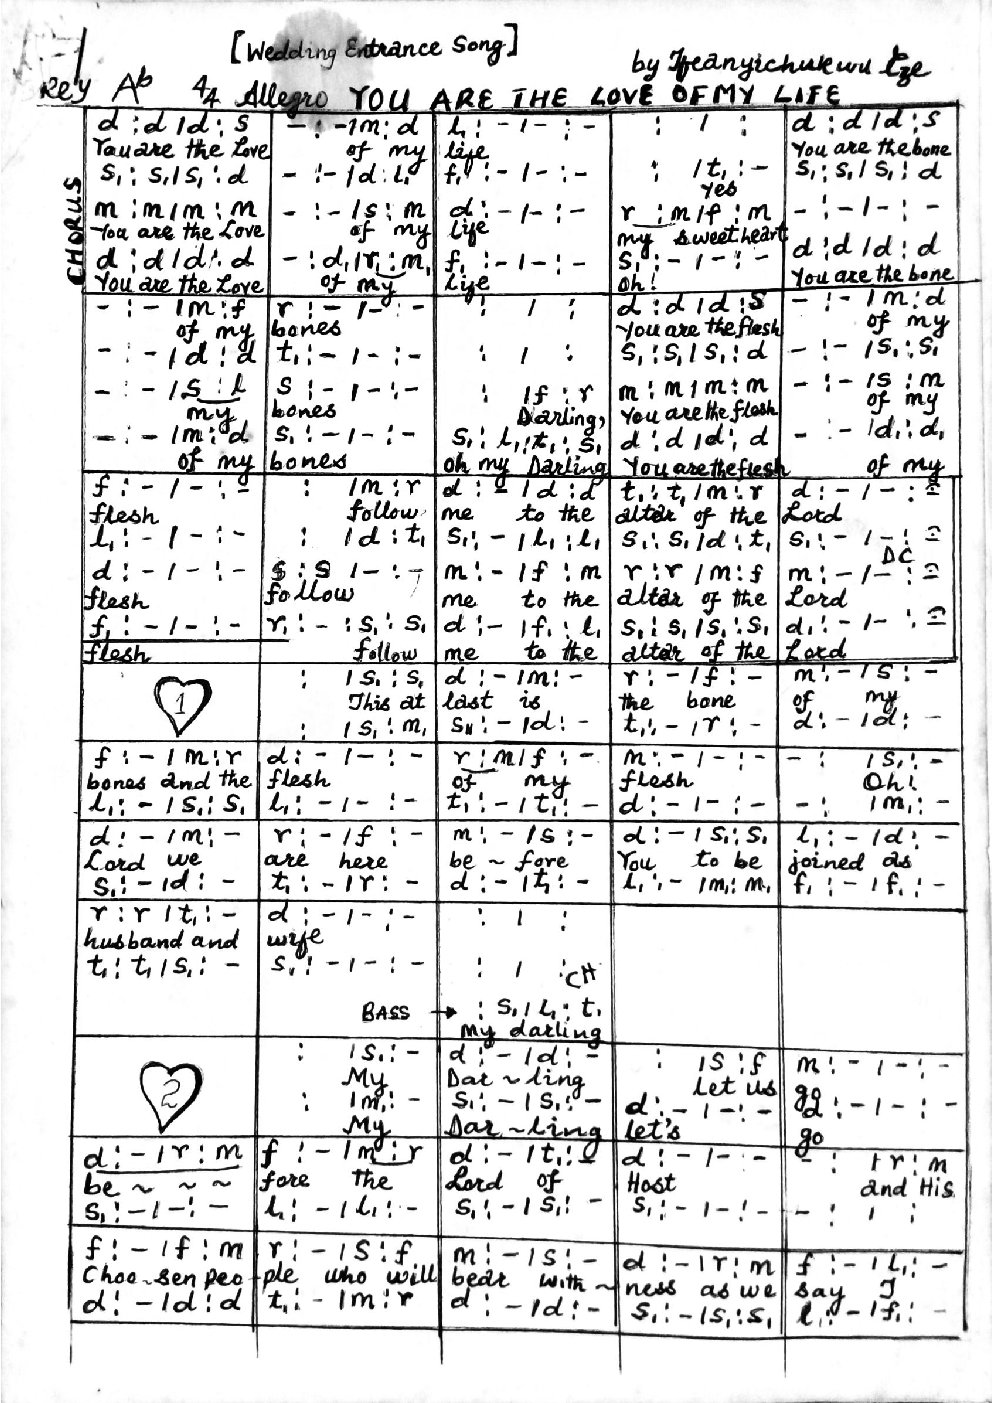 [Wedding Entrance Song]
by Ifeanyichukwu Eze
Key Ab 4/4 Allegro YOU ARE THE LOVE OF MY LIFE
CHORUS
d : d / d : s | - : - / m : d | l₁ : - / - : - | : / : | d : d / d : s
You are the Love | of my | life | | You are the bone
s₁ : s₁ / s₁ : d | - : - / d : l₁ | f₁ : - / - : - | : / t₁ : - | s₁ : s₁ / s₁ : d
Yes
m : m / m : m | - : - / s : m | d : - / - : - | r : m / f : m | - : - / - : -
You are the Love | of my | life | my sweetheart
d : d / d : d | - : d₁ / r₁ : m₁ | f₁ : - / - : - | s₁ : - / - : - | d : d / d : d
You are the Love | of my | life | Oh! | You are the bone
- : - / m : f | r : - / - : - | : / : | d : d / d : s | - : - / m : d
of my | bones | | You are the flesh | of my
- : - / d : d | t₁ : - / - : - | : / : | s₁ : s₁ / s₁ : d | - : - / s₁ : s₁
- : - / s : l | s : - / - : - | : / f : r | m : m / m : m | - : - / s : m
my | bones | Darling, | You are the flesh | of my
- : - / m : d | s₁ : - / - : - | s₁ : l₁ : t₁ : s₁ | d : d / d : d | - : - / d₁ : d₁
of my | bones | oh my Darling | You are the flesh | of my
f : - / - : - | : / m : r | d : - / d : d | t₁ : t₁ / m : r | d : - / - : -
flesh | follow | me to the | altar of the | Lord
l₁ : - / - : - | : / d : t₁ | s₁ : - / l₁ : l₁ | s₁ : s₁ / d : t₁ | s₁ : - / - : -
DC
d : - / - : - | s : s / - : - | m : - / f : m | r : r / m : f | m : - / - : -
flesh | follow | me to the | altar of the | Lord
f₁ : - / - : - | r₁ : - : s₁ : s₁ | d : - / f₁ : l₁ | s₁ : s₁ / s₁ : s₁ | d₁ : - / - : -
flesh | follow | me to the | altar of the | Lord
1 | : / s₁ : s₁ | d : - / m : - | r : - / f : - | m : - / s : -
This at | last is | the bone | of my
: / s₁ : m₁ | s₁₁ : - / d : - | t₁ : - / r : - | d : - / d : -
f : - / m : r | d : - / - : - | r : m / f : - | m : - / - : - | - : / s₁ : -
bones and the | flesh | of my | flesh | Oh!
l₁ : - / s₁ : s₁ | l₁ : - / - : - | t₁ : - / t₁ : - | d : - / - : - | - : / m₁ : -
d : - / m : - | r : - / f : - | m : - / s : - | d : - / s₁ : s₁ | l₁ : - / d : -
Lord we | are here | be ~ fore | You to be | joined as
s₁ : - / d : - | t₁ : - / r : - | d : - / t₁ : - | l₁ : - / m₁ : m₁ | f₁ : - / f₁ : -
r : r / t₁ : - | d : - / - : - | : / :
husband and | wife
t₁ : t₁ / s₁ : - | s₁ : - / - : - | : / :
CH
BASS → : s₁ / l₁ : t₁
My darling
2 | : / s₁ : - | d : - / d : - | : / s : f | m : - / - : -
My | Dar ~ ling | Let us | go
: / m₁ : - | s₁ : - / s₁ : - | d : - / - : - | d : - / - : -
My | Dar ~ ling | Let's | go
d : - / r : m | f : - / m : r | d : - / t₁ : - | d : - / - : - | - : / r : m
be ~ ~ ~ | fore the | Lord of | Host | and His
s₁ : - / - : - | l₁ : - / l₁ : - | s₁ : - / s₁ : - | s₁ : - / - : - | - : / :
f : - / f : m | r : - / s : f | m : - / s : - | d : - / r : m | f : - / l₁ : -
Choo~sen peo | -ple who will | bear with ~ | ness as we | say I
d : - / d : d | t₁ : - / m : r | d : - / d : - | s₁ : - / s₁ : s₁ | l₁ : - / f₁ : -